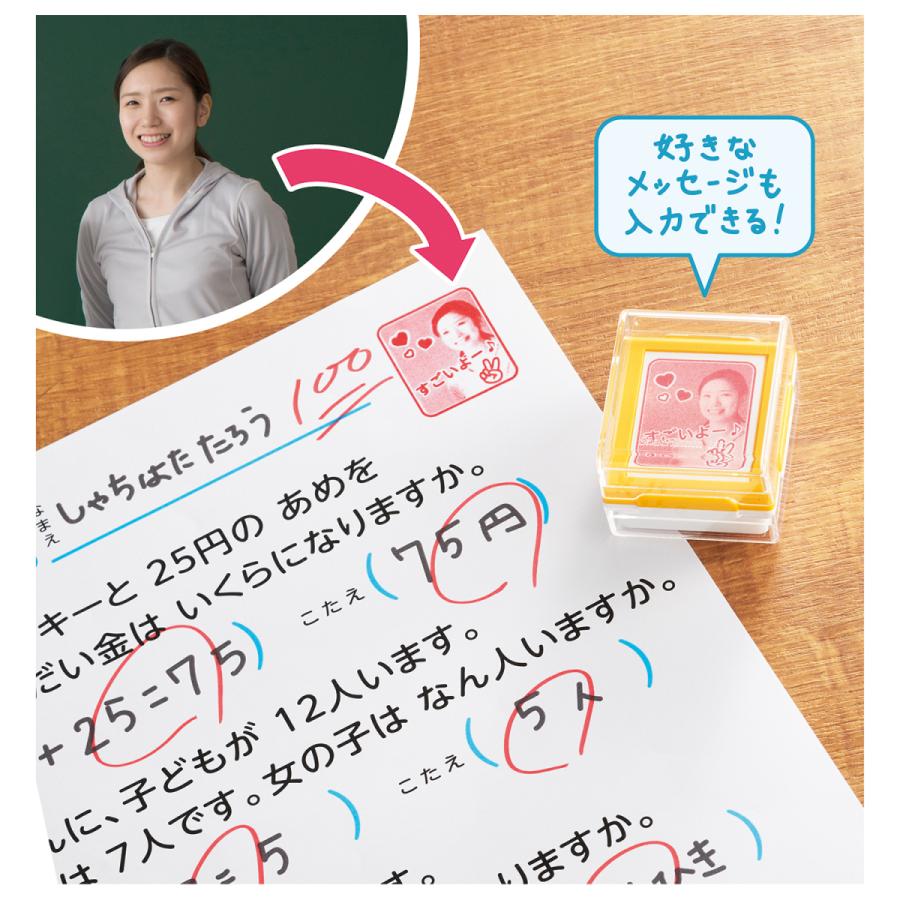 好きな
メッセージも
入力できる!
すごいよー♪
すごいよー♪
100
なまえ
しゃちはたたろう
キーと 25円の あめを
だい金は いくらになりますか。
こたえ
(75円)
+25=75)
に、子どもが 12人います。
は 7人です。女の子は なん人いますか。
こたえ
(5人)
=5
)
す。
りますか。